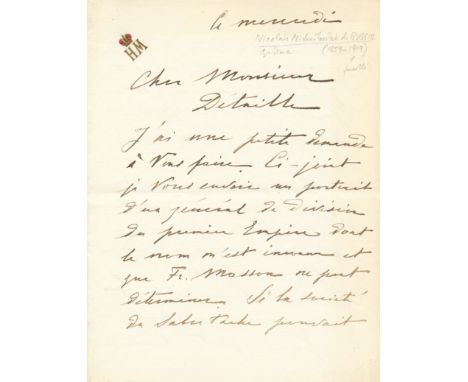 Ce mercredi
HM
Nicolas Mikhailovitch de RUSSIE
(1859-1919)
fusillé
Cher Monsieur
Détaille
J'ai une petite demande
à Vous faire. Ci-joint
je Vous envoie un portrait
d'un général de division
du premier Empire dont
le nom m'est inconnu et
que Fr. Masson ne peut
déterminer. Si la société
du Sabretache pouvait